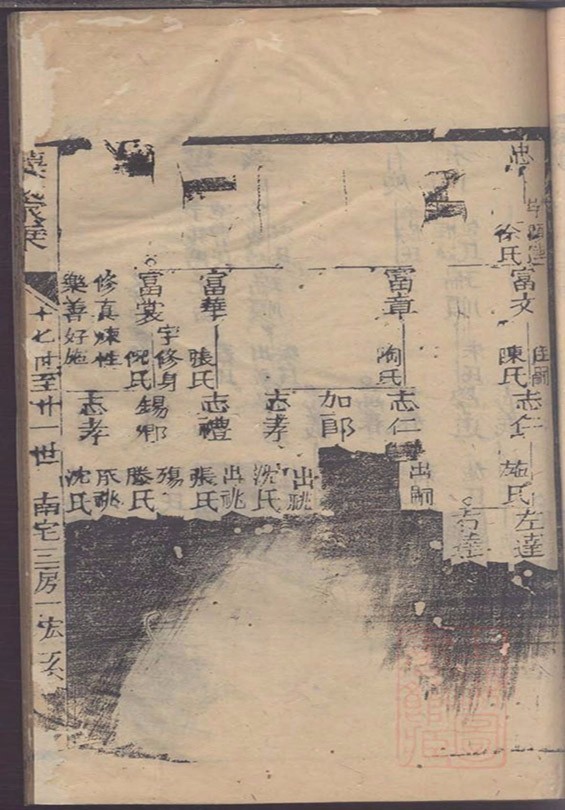 忠
徐氏
富文
陳氏
志仁
施氏
左達
右達
富章
陶氏
志仁
出嗣
加郎
志孝
出祧
沈氏
富華
張氏
志禮
出祧
張氏
富裳
字修身
倪氏
錫卿
殤
滕氏
修真煉性
樂善好施
志孝
承祧
沈氏
十七世至廿一世
南宅三房一宏